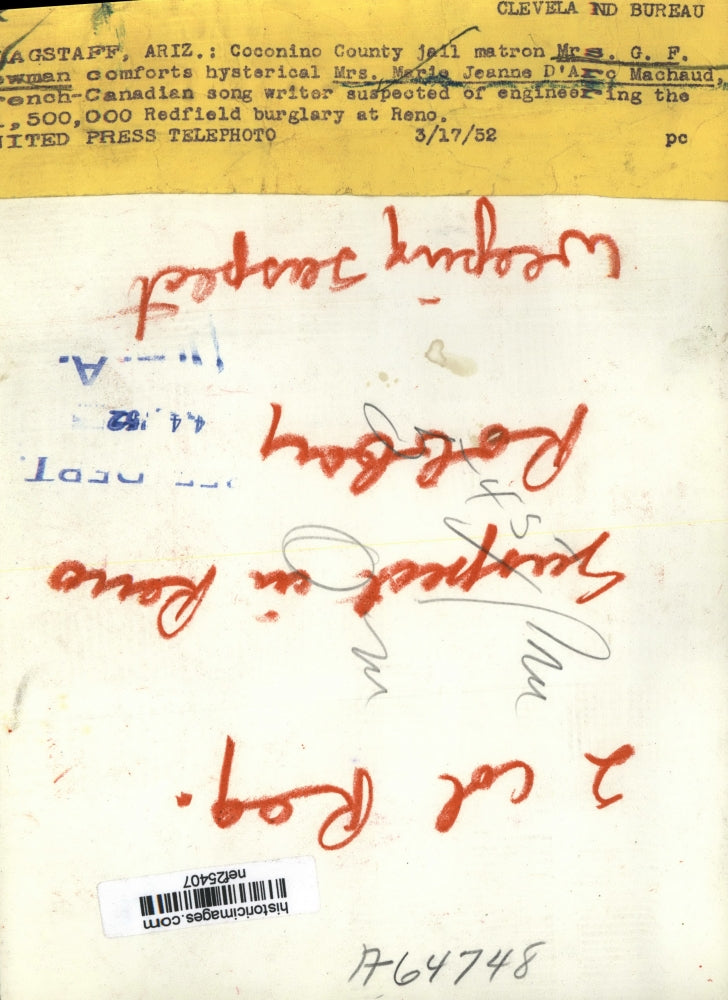 CLEVELAND BUREAU
AGSTAFF, ARIZ.: Coconino County jail matron Mrs. G. F.
ewman comforts hysterical Mrs. Marie Jeanne D'Arc Machaud,
rench-Canadian song writer suspected of engineering the
,500,000 Redfield burglary at Reno.
NITED PRESS TELEPHOTO 3/17/52 pc
A64748
historicimages.com
nef25407
2 col Reg.
Suspect in Reno
Robbery
Weeping Suspect